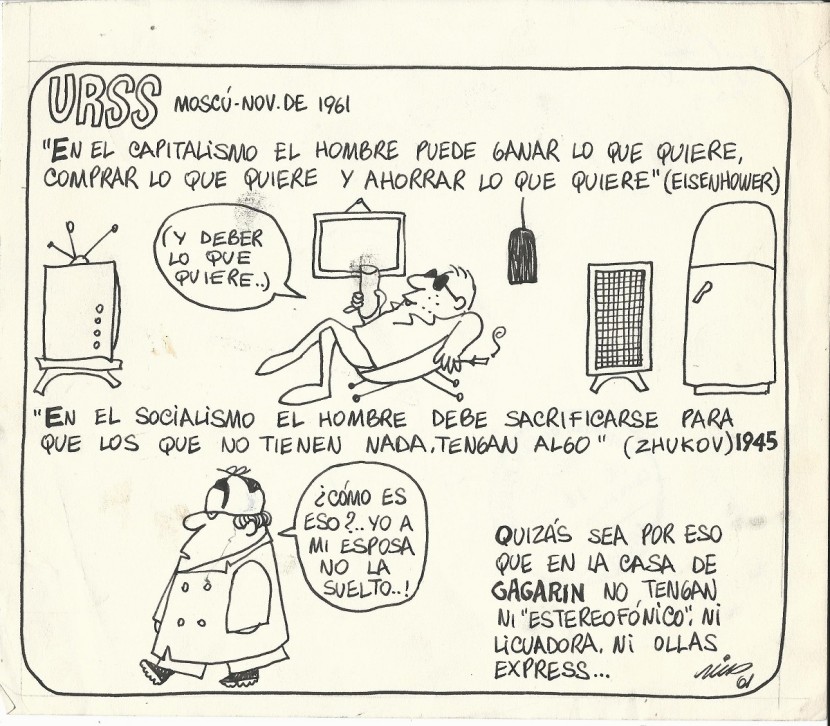 URSS MOSCÚ-NOV. DE 1961
"EN EL CAPITALISMO EL HOMBRE PUEDE GANAR LO QUE QUIERE,
COMPRAR LO QUE QUIERE Y AHORRAR LO QUE QUIERE" (EISENHOWER)
(Y DEBER
LO QUE
QUIERE..)
"EN EL SOCIALISMO EL HOMBRE DEBE SACRIFICARSE PARA
QUE LOS QUE NO TIENEN NADA, TENGAN ALGO" (ZHUKOV) 1945
¿CÓMO ES
ESO?..YO A
MI ESPOSA
NO LA
SUELTO..!
QUIZÁS SEA POR ESO
QUE EN LA CASA DE
GAGARIN NO TENGAN
NI "ESTEREOFÓNICO", NI
LICUADORA, NI OLLAS
EXPRESS...
61